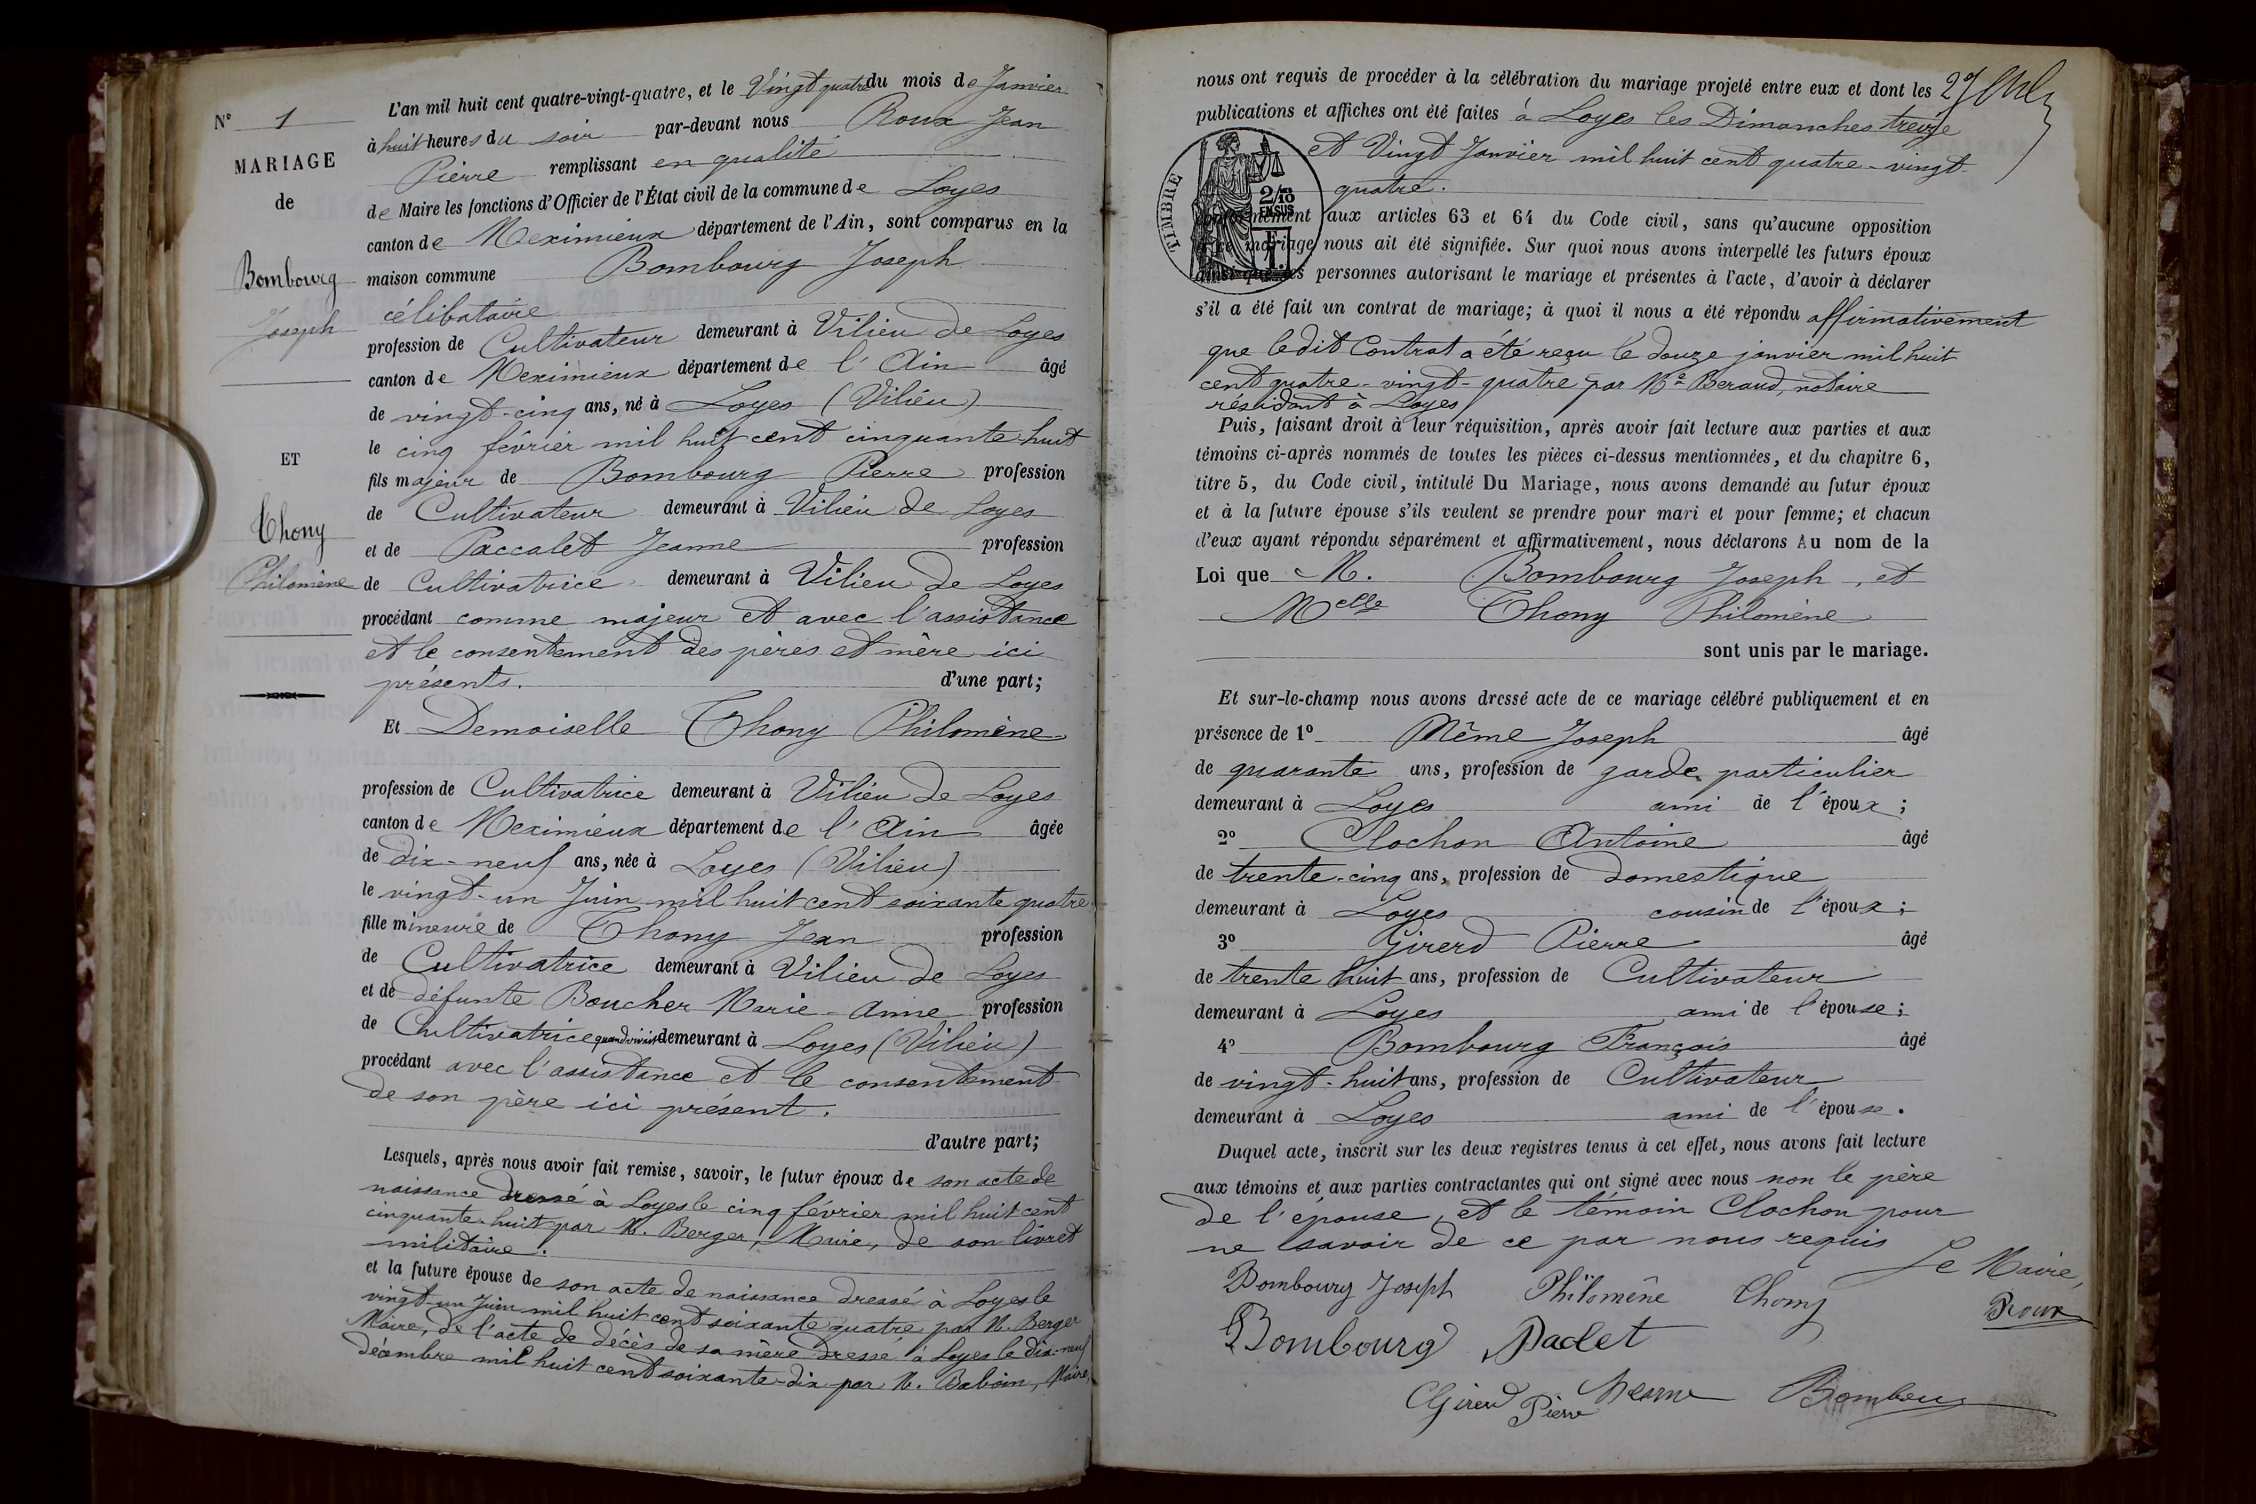 N° 1
MARIAGE
de
Bombourg
Joseph
ET
Thony
Philomène
L'an mil huit cent quatre-vingt-quatre, et le Vingt quatre du mois de Janvier
à huit heures du soir par-devant nous Roux Jean
Pierre remplissant en qualité
de Maire les fonctions d'Officier de l'État civil de la commune de Loyes
canton de Meximieux département de l'Ain, sont comparus en la
maison commune Bombourg Joseph
célibataire
profession de Cultivateur demeurant à Vilieu de Loyes
canton de Meximieux département de l'Ain âgé
de vingt-cinq ans, né à Loyes (Vilieu)
le cinq février mil huit cent cinquante-huit
fils majeur de Bombourg Pierre profession
de Cultivateur demeurant à Vilieu de Loyes
et de Paccalet Jeanne profession
de Cultivatrice demeurant à Vilieu de Loyes
procédant comme majeur et avec l'assistance
et le consentement des pères et mère ici
présents. d'une part;
Et Demoiselle Thony Philomène
profession de Cultivatrice demeurant à Vilieu de Loyes
canton de Meximieux département de l'Ain âgée
de dix-neuf ans, née à Loyes (Vilieu)
le vingt-un Juin mil huit cent soixante quatre
fille mineure de Thony Jean profession
de Cultivatrice demeurant à Vilieu de Loyes
et de défunte Boucher Marie-Anne profession
de Cultivatrice quand vivait demeurant à Loyes (Vilieu)
procédant avec l'assistance et le consentement
de son père ici présent.
d'autre part;
Lesquels, après nous avoir fait remise, savoir, le futur époux de son acte de
naissance dressé à Loyes le cinq février mil huit cent
cinquante-huit par M. Berger, Maire, de son livret
militaire.
et la future épouse de son acte de naissance dressé à Loyes le
vingt-un Juin mil huit cent soixante quatre par M. Berger
Maire, de l'acte de décès de sa mère dressé à Loyes le dix-neuf
décembre mil huit cent soixante-dix par M. Baboin, Maire
nous ont requis de procéder à la célébration du mariage projeté entre eux et dont les
publications et affiches ont été faites à Loyes les Dimanches treize
et Vingt Janvier mil huit cent quatre-vingt-
quatre.
TIMBRE
2/10
EN SUS
conformément aux articles 63 et 64 du Code civil, sans qu'aucune opposition
à ce mariage nous ait été signifiée. Sur quoi nous avons interpellé les futurs époux
ainsi que les personnes autorisant le mariage et présentes à l'acte, d'avoir à déclarer
s'il a été fait un contrat de mariage; à quoi il nous a été répondu affirmativement
que ledit Contrat a été reçu le douze janvier mil huit
cent quatre-vingt-quatre par Me Beraud, notaire
résidant à Loyes
Puis, faisant droit à leur réquisition, après avoir fait lecture aux parties et aux
témoins ci-après nommés de toutes les pièces ci-dessus mentionnées, et du chapitre 6,
titre 5, du Code civil, intitulé Du Mariage, nous avons demandé au futur époux
et à la future épouse s'ils veulent se prendre pour mari et pour femme; et chacun
d'eux ayant répondu séparément et affirmativement, nous déclarons Au nom de la
Loi que M. Bombourg Joseph, et
Melle Thony Philomène
sont unis par le mariage.
Et sur-le-champ nous avons dressé acte de ce mariage célébré publiquement et en
présence de 1° Même Joseph âgé
de quarante ans, profession de garde particulier
demeurant à Loyes ami de l'époux;
2° Clochon Antoine âgé
de trente-cinq ans, profession de domestique
demeurant à Loyes cousin de l'époux;
3° Girerd Pierre âgé
de trente huit ans, profession de Cultivateur
demeurant à Loyes ami de l'épouse;
4° Bombourg François âgé
de vingt-huit ans, profession de Cultivateur
demeurant à Loyes ami de l'épouse.
Duquel acte, inscrit sur les deux registres tenus à cet effet, nous avons fait lecture
aux témoins et aux parties contractantes qui ont signé avec nous non le père
de l'épouse, et le témoin Clochon pour
ne savoir de ce par nous requis
Le Maire,
Bombourg Joseph Philomène Thony
Roux
Bombourg Paclet
Girerd Pierre Bombou